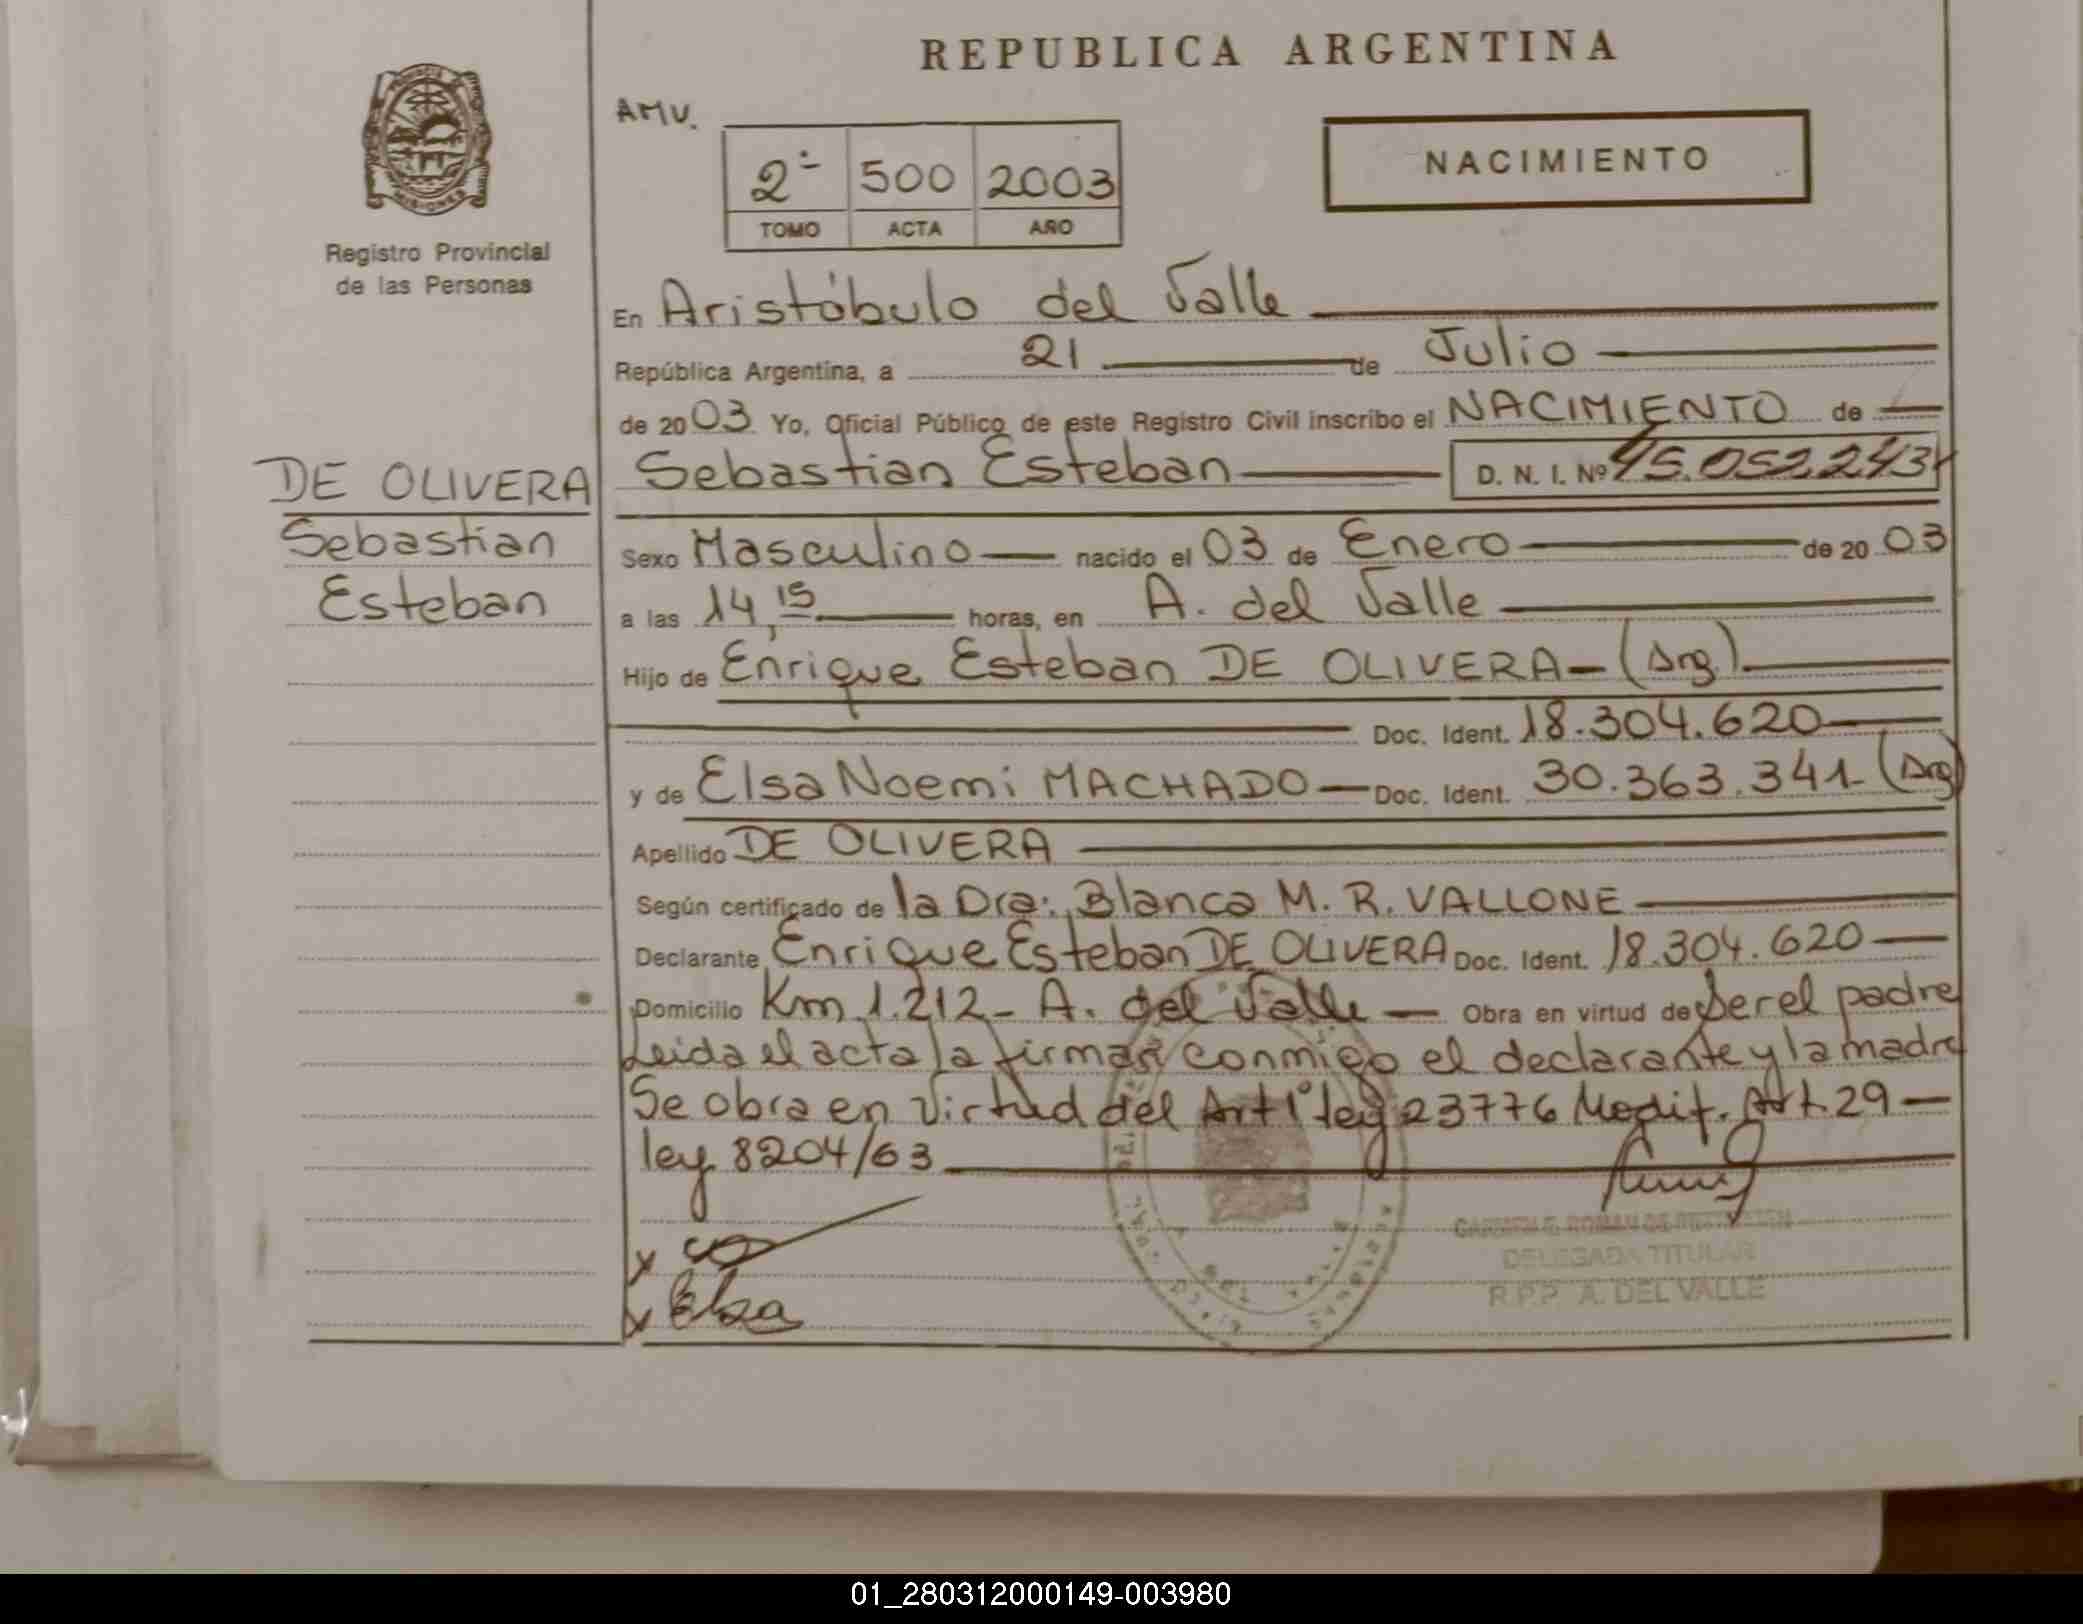 REPUBLICA ARGENTINA
AMV.
NACIMIENTO
2º 500 2003
TOMO ACTA AÑO
Registro Provincial
de las Personas
En Aristóbulo del Valle
República Argentina, a 21 de Julio
de 2003 Yo, Oficial Público de este Registro Civil inscribo el NACIMIENTO de
Sebastian Esteban D. N. I. Nº 45.052.243
DE OLIVERA
Sebastian
Esteban
Sexo Masculino nacido el 03 de Enero de 2003
a las 14,15 horas, en A. del Valle
Hijo de Enrique Esteban DE OLIVERA - (Arg)
Doc. Ident. 18.304.620
y de Elsa Noemi MACHADO Doc. Ident. 30.363.341 (Arg)
Apellido DE OLIVERA
Según certificado de la Dra: Blanca M. R. VALLONE
Declarante Enrique Esteban DE OLIVERA Doc. Ident. 18.304.620
Domicilio Km 1.212 - A. del Valle Obra en virtud de Ser el padre
Leida el acta la firman conmigo el declarante y la madre
Se obra en virtud del Art 1º ley 23776 Modif. Art. 29
ley 8204/63
x
x Elsa
DELEGADA TITULAR
R.P.P. A. DEL VALLE
01_280312000149-003980